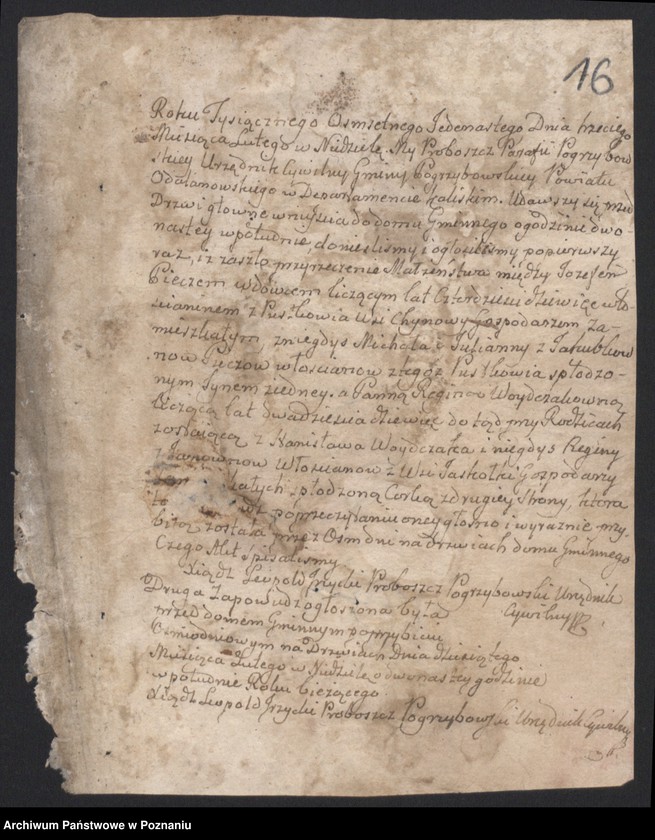 16
Roku Tysiącznego Osmsetnego Jedenastego Dnia trzeciego
Miesiąca Lutego w Niedzielę. My Proboszcz Parafii Pogrzybow
skiey Urzędnik Cywilny Gminy Pogrzybowskiey Powiatu
Odalanowskiego w Departamencie Kaliskim. Udawszy się przed
Drzwi głowne wniyscia do domu Gminnego o godzinie dwo-
nastey w południe, doniesliśmy i ogłosiliśmy popierwszy
raz, iż zaszło przyrzeczenie Małżeństwa między Jozefem
Pieczem wdowcem liczącym lat Czterdzieści dziewięć wło-
scianinem z Pustkowia Wsi Chynowy Gospodarzem Za-
mieszkałym, z niegdys Michała i Julianny z Jakubkow
now Pieczow włoscianow z tegoż Pustkowia spłodzo-
nym Synem z iedney. a Panną Reginą Woydczakowną
liczącą lat dwadziescia dziewięć do tąd przy Rodzicach
zostaiącą z Stanisława Woydczaka i niegdys Reginy
z Janownow Włoscianow z Wsi Jaskołki Gospodarzy
łatych spłodzoną Corką z drugiey Strony, ktora
to poprzeczytaniu oney głosno i wyraznie przy-
bitą została przez Osm dni na drzwiach domu Gminnego
Czego Akt Spisaliśmy
Xiądz Leopold Jrzycki Proboszcz Pogrzybowski Urzędnik
Cywilny
Druga Zapowiedz ogłoszona była
przed domem Gminnym po przybiciu
Osmiodniowym na Drzwiach Dnia dziesiątego
Miesiąca Lutego w Niedzielę o dwonastey godzinie
w południe Roku bieżącego.
Xiądz Leopold Jrzycki Proboszcz Pogrzybowski Urzędnik Cywilny
Archiwum Państwowe w Poznaniu